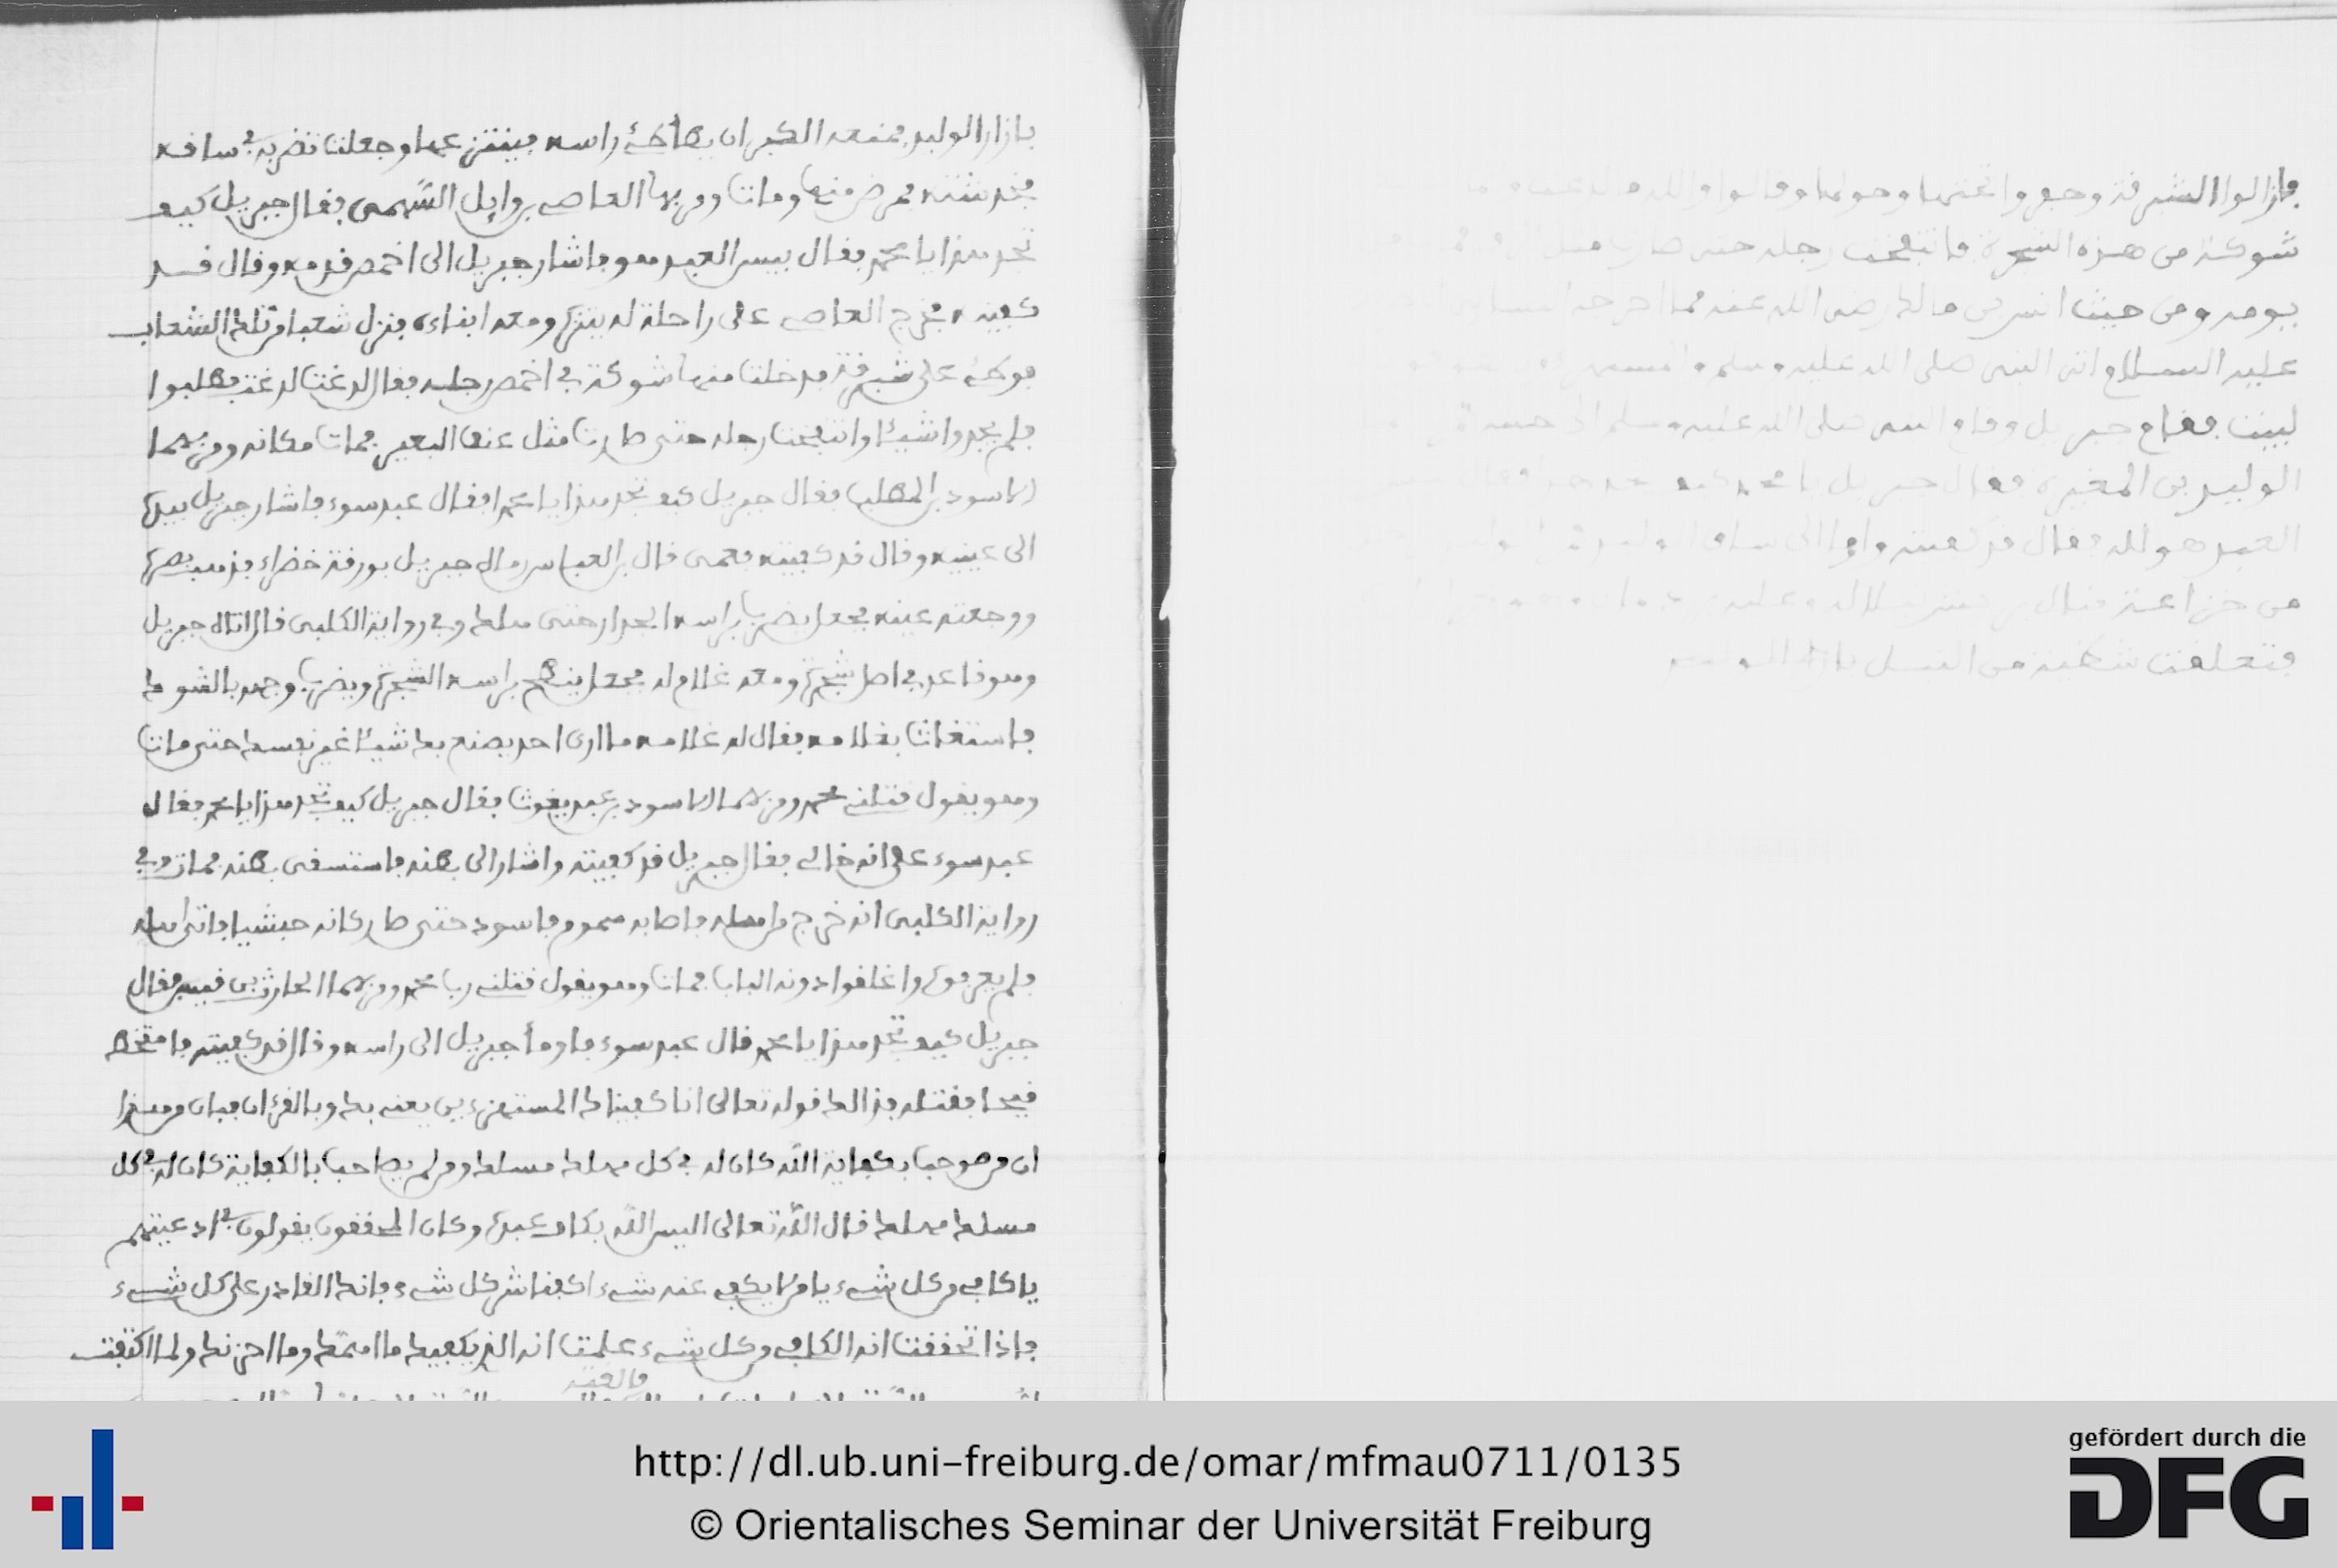 فازالوا الشرقة وحفروا تحتها وحولها وقالوا والله
شوكة من هذه الشجرة فانتفخت رجله حتى صارت مثل
يومه ومن حيث انس بن مالك رضي الله عنه مما اخرجه
عليه السلام اتى النبي صلى الله عليه وسلم
لبيت فقام جبريل وقام النبي صلى الله عليه وسلم الى جنبه
الوليد بن المغيرة فقال جبريل يا محمد كيف تجد هذا فقال
العبد هو لله فقال قد كفيته واوما الى ساق الوليد
من خزاعة نبال
فتعلقت شظية من النبل بازار الوليد
بازار الوليد فمنعه الكبر ان يطأطئ راسه فينتزعها وجعلت تضربه في ساقه
فخدشته فمرض منها ومات ومر بهما العاصي بن وايل السهمي فقال جبريل كيف
تجد هذا يا محمد فقال بيس العبد هو فاشار جبريل الى اخمص قدمه وقال قد
كفيته فخرج العاصي على راحلة له يتنزه ومعه ابناءه فنزل شعبا من تلك الشعاب
فوطئ على شبرقة فدخلت منها شوكة في اخمص رجله فقال لدغت لدغت فطلبوا
فلم يجدوا شيئا وانتفخت رجله حتى صارت مثل عنق البعير فمات مكانه ومر بهما
الاسود بن المطلب فقال جبريل كيف تجد هذا يا محمد فقال عبد سوء فاشار جبريل بيده
الى عينيه وقال قد كفيته فعمي قال ابن العباس رماه جبريل بورقة خضراء فذهب بصره
ووجعته عينه فجعل يضرب براسه الجدار حتى هلك وفي رواية الكلبي قال اتاه جبريل
وهو قاعد في اصل شجرة ومعه غلام له فجعل ينطح براسه الشجرة ويضرب وجهه بالشوك
فاستغاث بغلامه فقال له غلامه ما ارى احد يصنع بك شيئا غير نفسك حتى مات
وهو يقول قتلني محمد ومر بهما الاسود بن عبد يغوث فقال جبريل كيف تجد هذا يا محمد فقال
عبد سوء على انه خالي فقال جبريل قد كفيته واشار الى بطنه فاستسقى بطنه فمات وفي
رواية الكلبي انه خرج من اهله فاصابه سموم فاسود حتى صار كانه حبشيا فاتى اهله
فلم يعرفوه واغلقوا دونه الباب فمات وهو يقول قتلني رب محمد ومر بهما الحارث بن قيس فقال
جبريل كيف تجد هذا يا محمد قال عبد سوء فاومأ جبريل الى راسه وقال قد كفيته فامتخط
قيحا فقتله فذالك قوله تعالى انا كفيناك المستهزءين يعني بك وبالقرءان فبان من هذا
ان من صوحب بكفاية الله كان له في كل مهلك مسلك ومن لم يصاحب بالكفاية كان له في كل
مسلك مهلك قال الله تعالى اليس الله بكاف عبده وكان المحققون يقولون في ادعيتهم
يا كافي من كل شيء يا من لا يكفي عنه شيء اكفنا شر كل شيء فانك القادر على كل شيء
فاذا تحققت انه الكافي من كل شيء علمت انه الذي يكفيك ما اهمك وما احزنك ولما اكتفيت
http://dl.ub.uni-freiburg.de/omar/mfmau0711/0135
© Orientalisches Seminar der Universität Freiburg
gefördert durch die
DFG